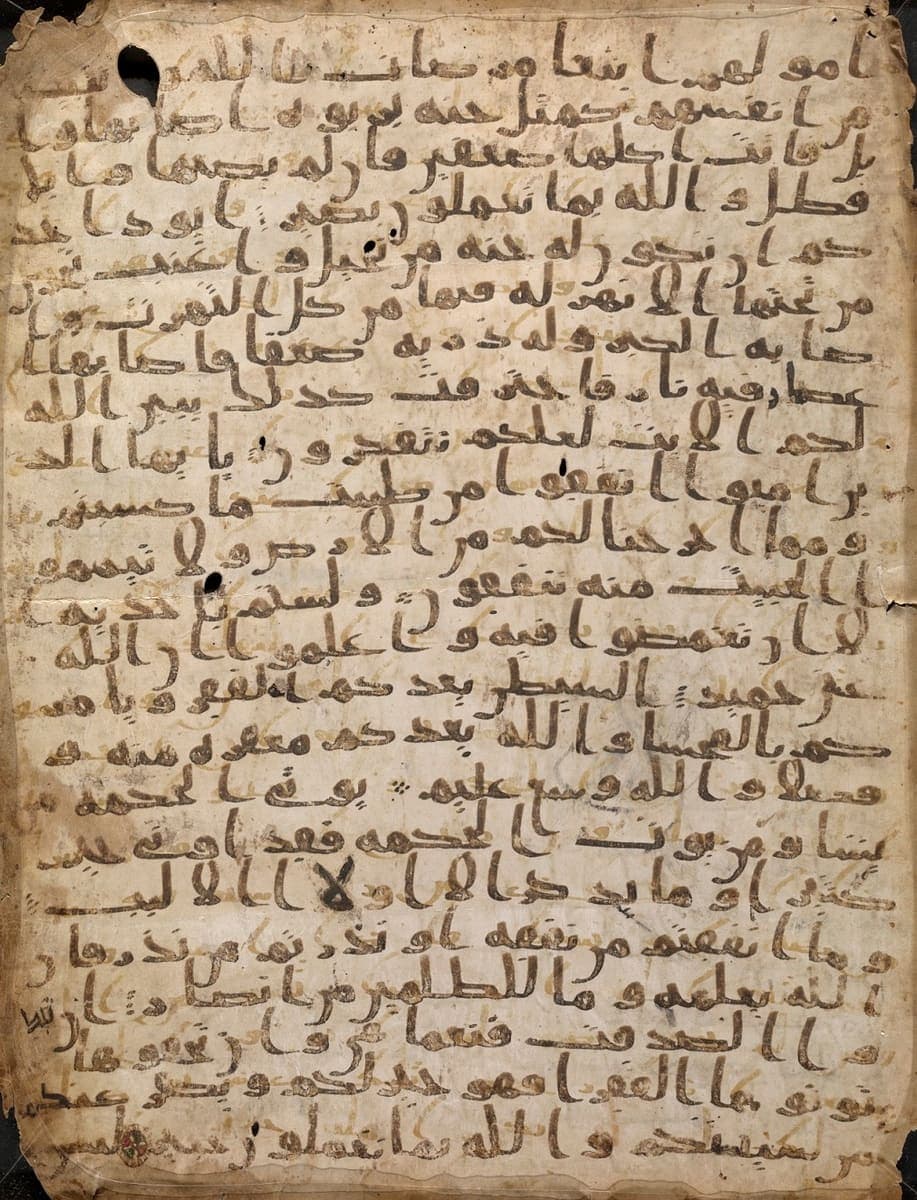 امولهم ابتغا مرضات الله
من انفسهم كمثل جنه بربوه اصابها وا
بل فاتت اكلها ضعفين فان لم يصبها وابل
فطل والله بما تعملون بصير ايود احد
كم ان تكون له جنه من نخيل واعنب تجري
من تحتها الانهر له فيها من كل الثمرت وا
صابه الكبر وله ذريه ضعفا فاصابها ا
عصار فيه نار فاحترقت كذلك يبين الله
لكم الايت لعلكم تتفكرون يايها الذ
ين امنوا انفقوا من طيبت ما كسبتم
ومما اخرجنا لكم من الارض ولا تيممو
ا الخبيث منه تنفقون ولستم باخذيه ا
لا ان تغمضوا فيه واعلموا ان الله
غني حميد الشيطن يعدكم الفقر ويامر
كم بالفحشا والله يعدكم مغفره منه و
فضلا والله وسع عليم يوتي الحكمه من
يشا ومن يوت الحكمه فقد اوتي خير
كثيرا وما يذكر الا اولوا الالبب
وما انفقتم من نفقه او نذرتم من نذر فان
الله يعلمه وما للظلمين من انصار ان تبد
وا الصدقت فنعما هي وان تخفوها
وتوتوها الفقرا فهو خير لكم ويكفر عنكم
من سيتكم والله بما تعملون خبير ليس